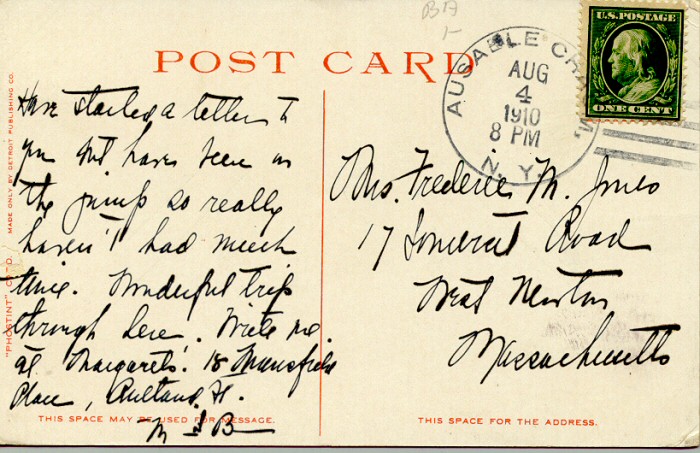 POST CARD
AUSABLE CHASM, N.Y.
AUG
4
1910
8 PM
U.S. POSTAGE
ONE CENT
"PHOSTINT" CARD. MADE ONLY BY DETROIT PUBLISHING CO.
Have started a letter to
you but have been on
the jump so really
haven't had much
time. Wonderful trip
through here. Write me
at Margarets'. 18 Mansfield
Place, Rutland, Vt.
M
B
Mrs. Frederic M. Jones
17 Somerset Road
West Newton
Massachusetts
THIS SPACE MAY BE USED FOR MESSAGE.
THIS SPACE FOR THE ADDRESS.